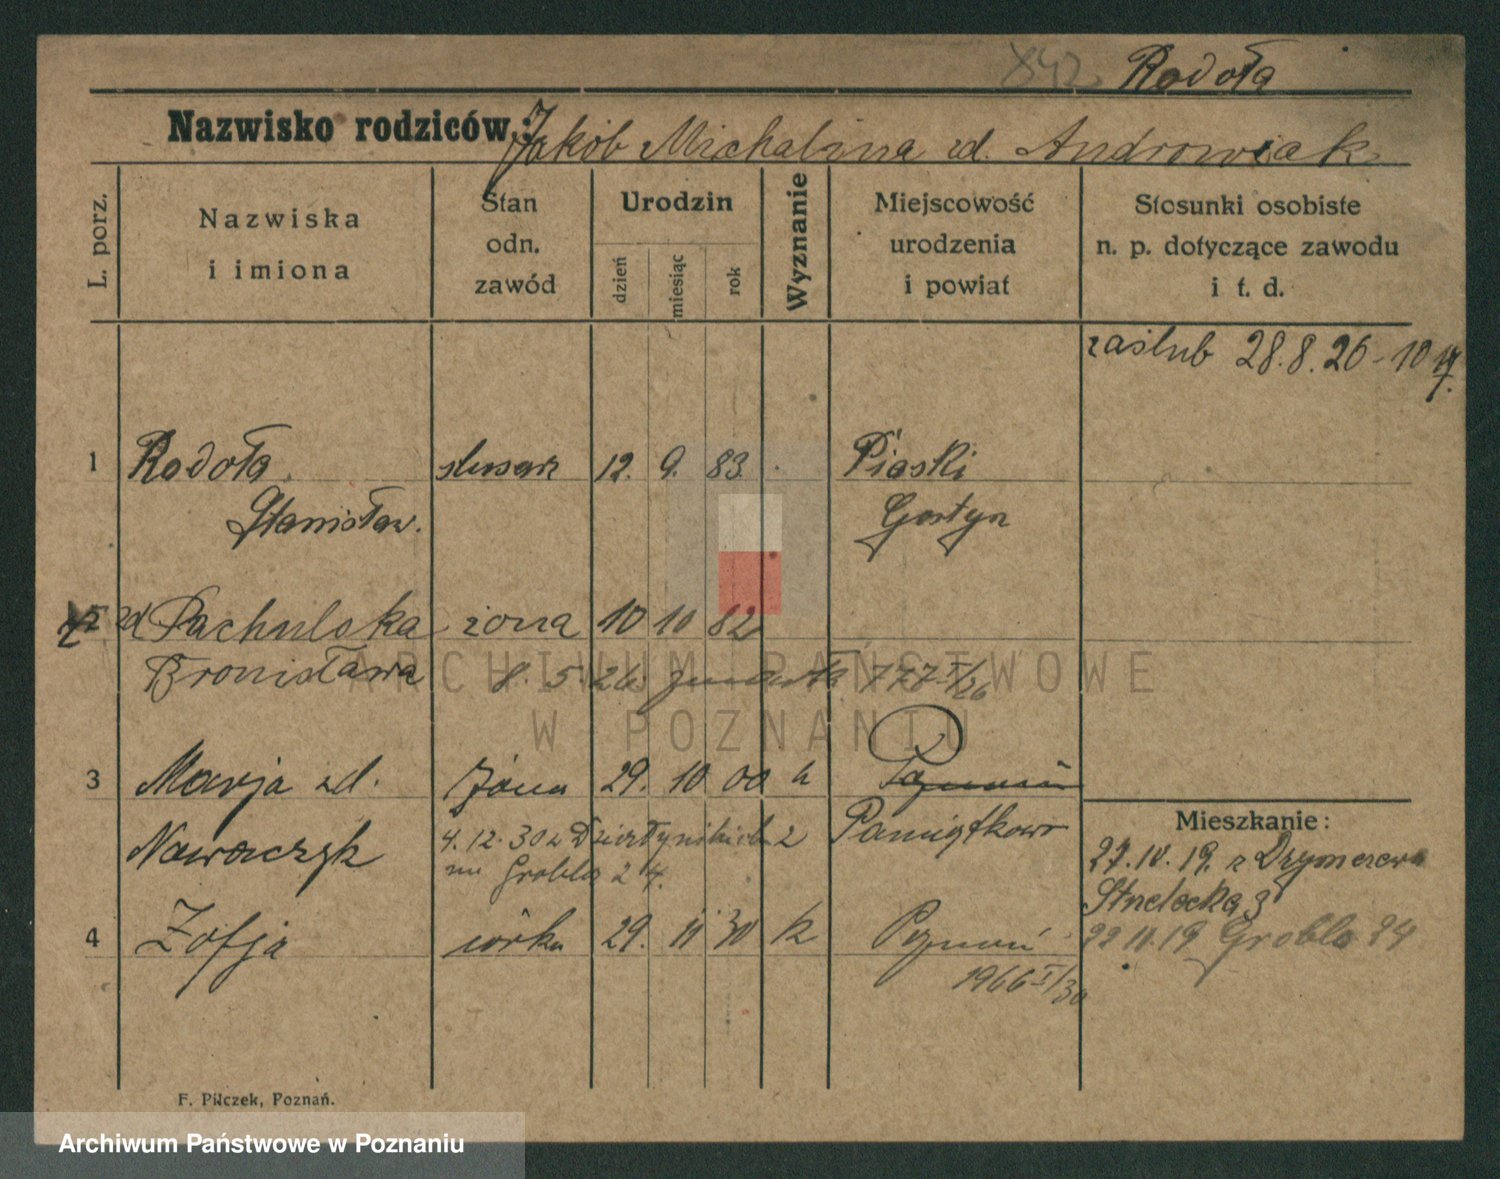 842 Radoła
Nazwisko rodziców: Jakób Michalina zd. Andrzowiak
L. porz.
Nazwiska i imiona
Stan odn. zawód
Urodzin
dzień miesiąc rok
Wyznanie
Miejscowość urodzenia i powiat
Stosunki osobiste n. p. dotyczące zawodu i t. d.
zaślub 28.8.26
1 Radoła ślusarz 12. 9. 83. Piaski
Stanisław. Gostyn
2 zd Pachulska żona 10 10 82
Bronisława 8. 5. 26 zmarła 777 I/26
3 Marja zd. żona 29. 10 00 k Poznań
Nawrczyk 4. 12. 30 z Działyńskich 2 Pamiątkowo
na Grobla 24.
4 Zofja córka 29. 11 30 k Poznań
1966 I/30
Mieszkanie:
27. 10. 19. z
Strzelecka 3
22 11. 19 Grobla 24
F. Pilczek, Poznań.
ARCHIWUM PAŃSTWOWE
W POZNANIU
Archiwum Państwowe w Poznaniu